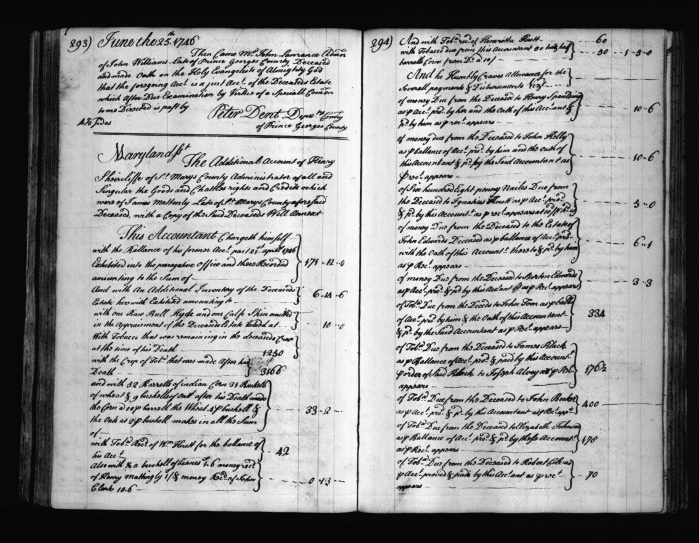 293) June the 25th. 1746
Then Came Mr. John Lawrance Admr.
of John Williams Late of Prince Georges County Deceased
and made Oath on the Holy Evangelists of Almighty God
that the foregoing Acct. is a just Acct. of the Deceaseds Estate
which after Due Examination by Vertue of a Speciall Commn.
to me Directed is past by
Peter Dent Depty. Comry.
of Prince Georges County
Maryland sst.
The Additional Account of Henry
of St. Marys County Administrator of all and
Singular the Goods and Chattles rights and Credits which
were of James Late of St. Marys County aforesaid
Deceased, with a Copy of the said Deceaseds Will Annext
This Accountant Chargeth himself
with the Ballance of his former Acct. past 2d. april 1746
Exhibited into the parogative Office and there Recorded
amounting to the Sum of 178-12-0
And with An Additional Inventory of the Deceaseds
Estate herewith Exhibited amounting to 6-
with one Raw Bull Hyde and one Calfs Skin omitted
in the Appraisment of the Deceaseds Estate 10-0
With Tobacco that was remaining in the deceaseds Crop
at the time of his Death 1250
with the Crop of Tobo. that was made After his
Death 3166
and with 32 Barrells of indian Corn 35 Bushells
of wheat & 9 bushells of oats after his Death made
the Corn at 10 p barrell the Wheat p bushell &
the Oats at p bushell makes in all the Sum
of 33-2-
with Tobo. Recd. of Wm. for the ballance of
his Acct. 42
Also with ½ a bushell of beanes 1-6 money recd.
of Henry Mattingly 1/ & money Recd. of John
Clark 10-6 0-13-
294) And with Tobo. recd. of Henrietta 60
with Tobacco due from this Accountant
barrells Corn from Do. 30 1-5-0
And he Humbly Craves Allowance for the
Severall payments & Disbursements Vizt.
of money Due from the Deceased to Henry Spalding
as p Acct. prd. by him and the Oath of this Accountant &
pd. by him as p rect. appears 10-6
of money due from the Deceased to John
as p ballance of Acct. prd. by him and the Oath of
this Accountant & pd. by the Said Accountant as
p Rect. appears 10-6
of Six hundred Eight penny Nailes Due from
the Deceased to Ignatius as p Acct. prd.
& pd. by this Accountt. as p rect. appears 5-0
of money Due from the Deceased to the Estate of
John Edwards Deceased as p ballance of Acct. prd.
with the Oath of this Accountt. thereto & pd. by him
as p Rect. appears 6-
of money Due from the Deceased to Edwards
as p Acct. prd. & pd. by this Acct. as p Rect. appears 3-3
of Tobo. Due from the Deceasd. to John as p balla.
of Acct. prd. by him & the Oath of this Accountant
& pd. by the Said Accountant as p Rect. appears 334
of Tobo. Due from the Deceased to James
as p Ballance of Acct. prd. & paid by this Accountt. p
order of said to Joseph as p Rect.
appears 176½
of Tobo. Due from the Deceased to John
as p Acct. prd. & pd. by this Accountant as p Rect. appr. 400
of Tobo. Due from the Deceased to Elizabeth Johnson
as p Ballance of Acct. prd. & pd. by this Accountant
as p Rect. appears 498
of Tobo. Due from the Deceased to Robert as
p Acct. proved & paid by this Acctant as p rect.
appears 70